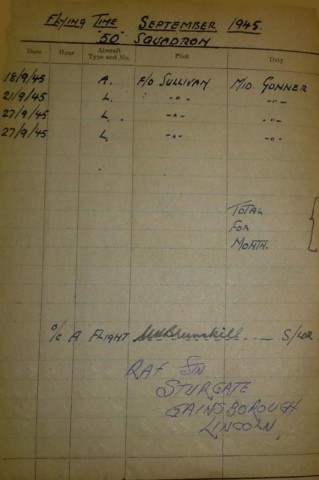 FLYING TIME SEPTEMBER 1945.
"50" SQUADRON
Date Hour Aircraft Type and No. Pilot Duty
18/9/45 A. F/O SULLIVAN MID. GUNNER
21/9/45 L. -"- -"-
27/9/45 L. -"- -"-
27/9/45 L -"- -"-
TOTAL
FOR
MONTH.
O/C A FLIGHT S/LDR
RAF STN
STURGATE
GAINSBOROUGH
LINCOLN